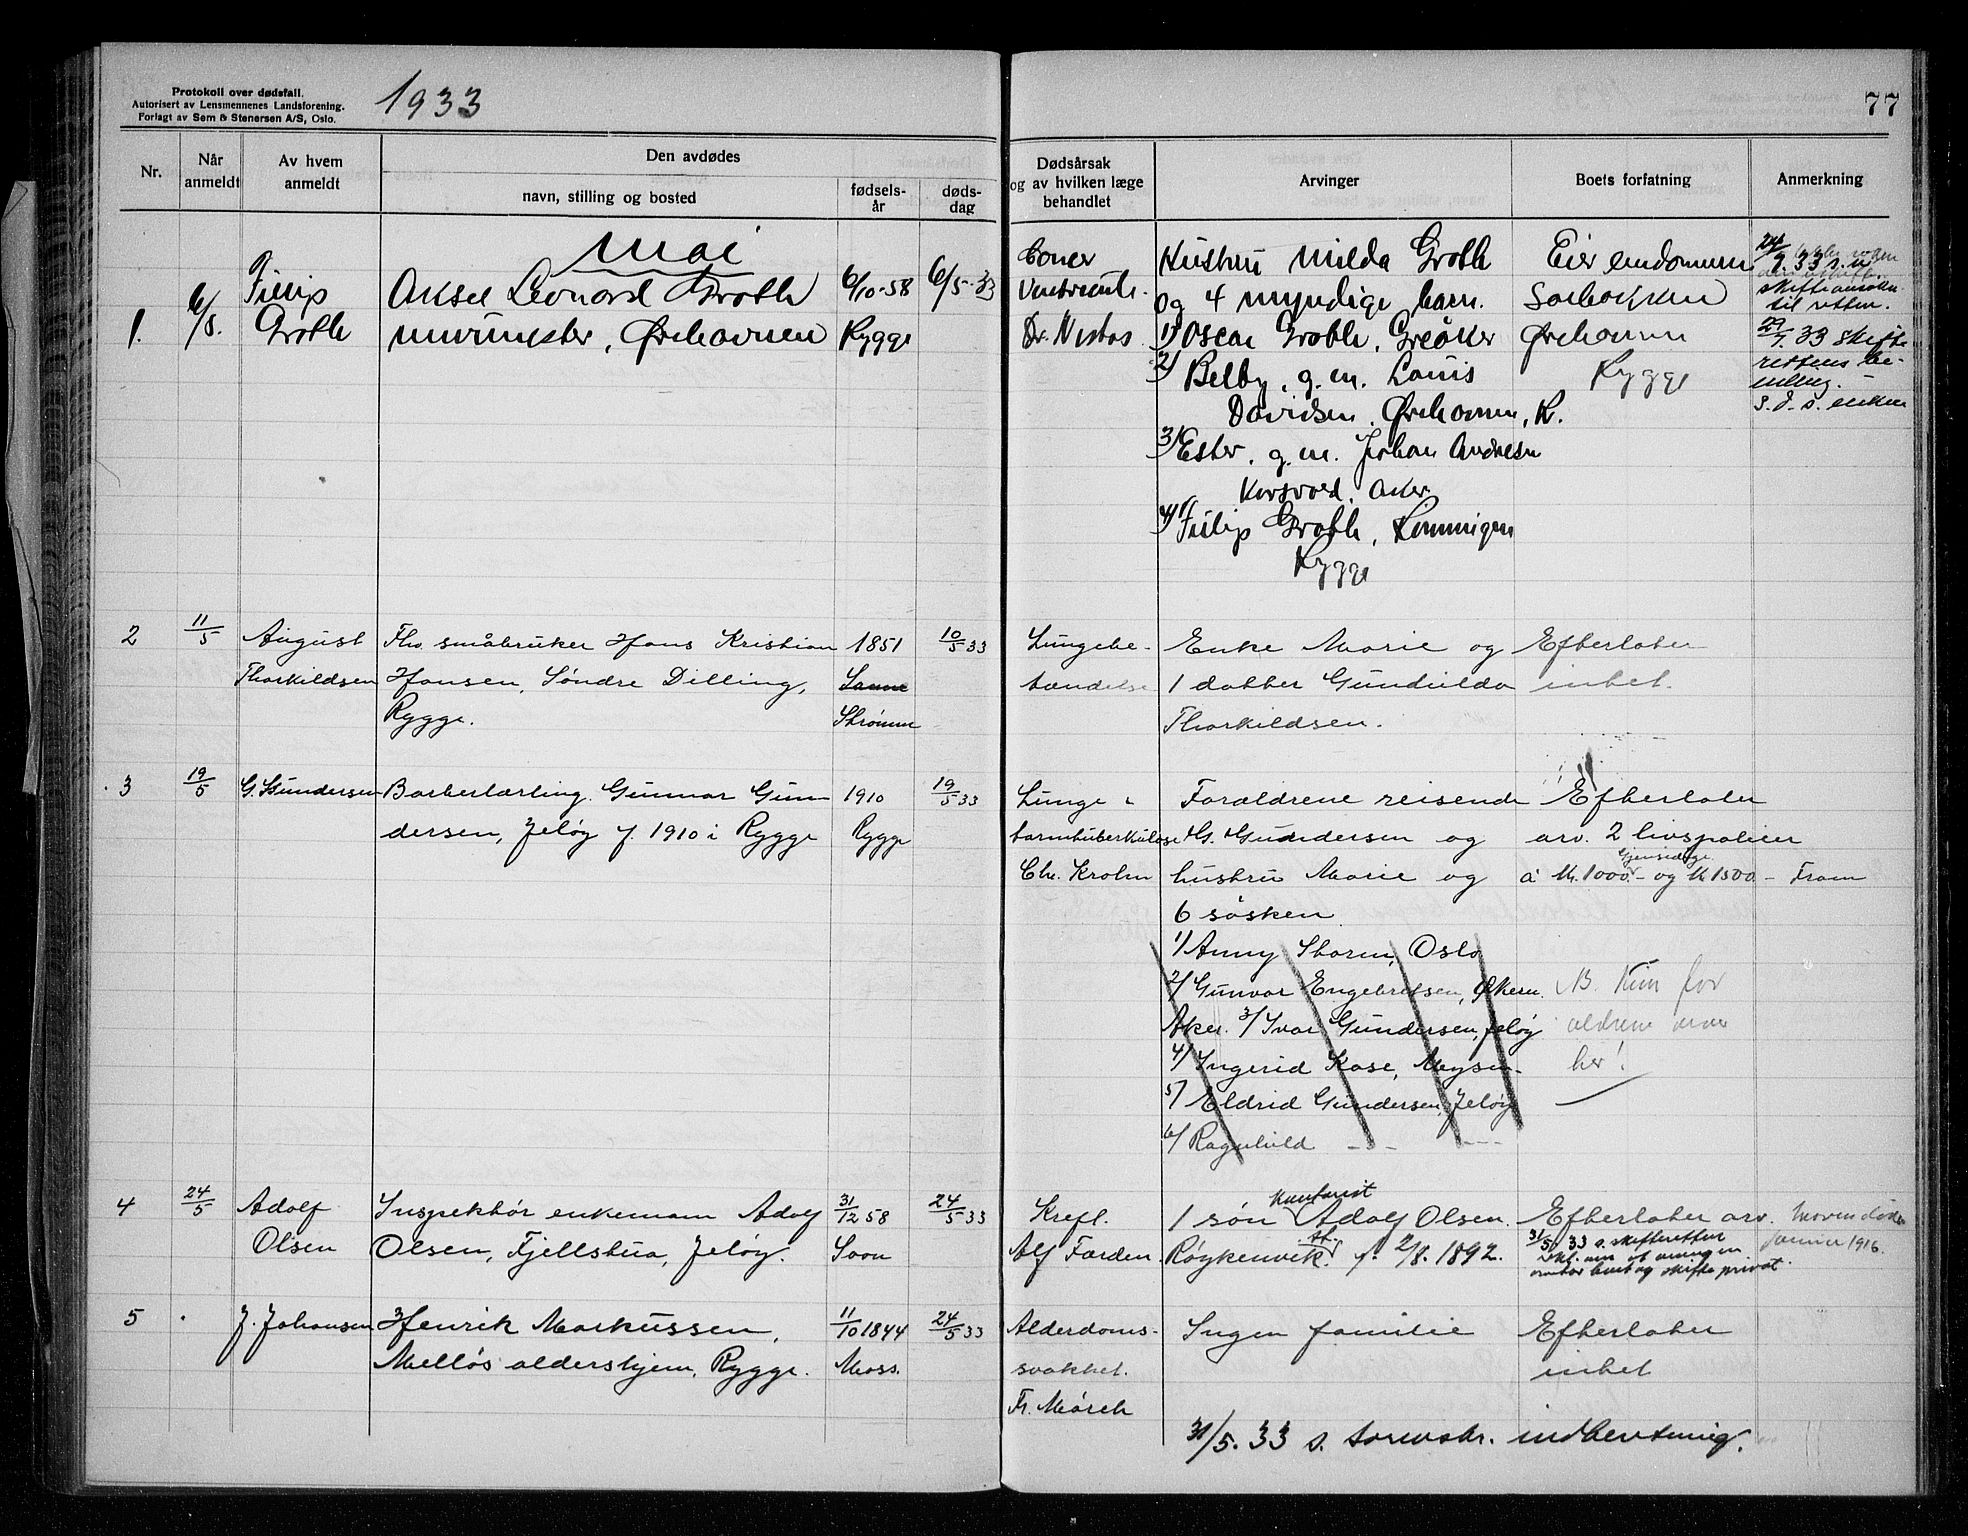 Protokoll over dødsfall.
Autorisert av Lensmennenes Landsforening.
Forlagt av Sem & Stenersen A/S, Oslo.
1933
77
Nr.
Når anmeldt
Av hvem anmeldt
Den avdødes
navn, stilling og bosted
fødsels-år
døds-dag
Dødsårsak og av hvilken læge behandlet
Arvinger
Boets forfatning
Anmerkning
Mai
1.
6/5.
Filip
Groth
Aksel Leonard Groth
murmester, Ørehavnen
6/10-58
Rygge
6/5-33
Cancer
Ventricule.
Dr. Nistos
Hustru Milda Groth
og 4 myndige barn.
1) Oscar Groth, Greåker
2/ Belby, g.m. Louis
Davidsen, Ørehavnen, R.
3/ Ester, g.m. Johan Andresen
Korsvold, Aker
4/ Filip Groth,
Rygge
Eier eiendommen
Solbakken
Ørehavnen
Rygge
skifteansøkn.
til retten.
29/7 33 skifte
rettens be-
villing.
s. d. s. enken
2
11/5
August
Thorkildsen
Fhv. småbruker Hans Kristian
Hansen, Søndre Dilling,
Rygge.
1851
Sanne
Strømm
10/5 33
Lungebe-
tændelse
Enke Marie og
1 datter Gunhilda
Thorkildsen.
Efterlater
intet.
3
19/5
G. Gundersen
Barberlærling Gunnar Gun
dersen, Jeløy f. 1910 i Rygge
1910
Rygge
19/5 33
Lunge-
tarmtuberkulose
Chr. Krohn
Forældrene reisende
G. Gundersen og
hustru Marie og
6 søsken
1/ Anny Storm, Oslo
2/ Gunvor Engebretsen, Økern
Aker. 3/ Ivar Gundersen, Jeløy
4/ Ingerid Kase, Mysen
5/ Eldrid Gundersen, Jeløy
6/ Ragnhild -"- -"-
Efterlater
arv. 2 livspoliser
Gjensidige
à kr. 1000.- og kr 1500.- Fram
NB. Kun for
ældrene arver
her!
4
24/5
Adolf
Olsen
Inspektør enkemann Adolf
Olsen, Fjellstua, Jeløy.
31/12 58
Soon
24/5 33
Kreft.
Alf Færden
Kontorist
1 søn Adolf Olsen.
Røykenvik st. f. 2/8. 1892.
Efterlater arv.
31/5 33 s. skifteretten
erkl. om at arvingen
overtar boet og skifte privat.
moren døde
januar 1916.
5
J. Johansen
Henrik Markussen,
Melløs aldershjem, Rygge.
11/10 1844
Moss.
24/5 33
Alderdoms-
svakhet.
Fr. Mørch
Ingen familie
Efterlater
intet
31/5. 33 s. sorenskr. indberetning.